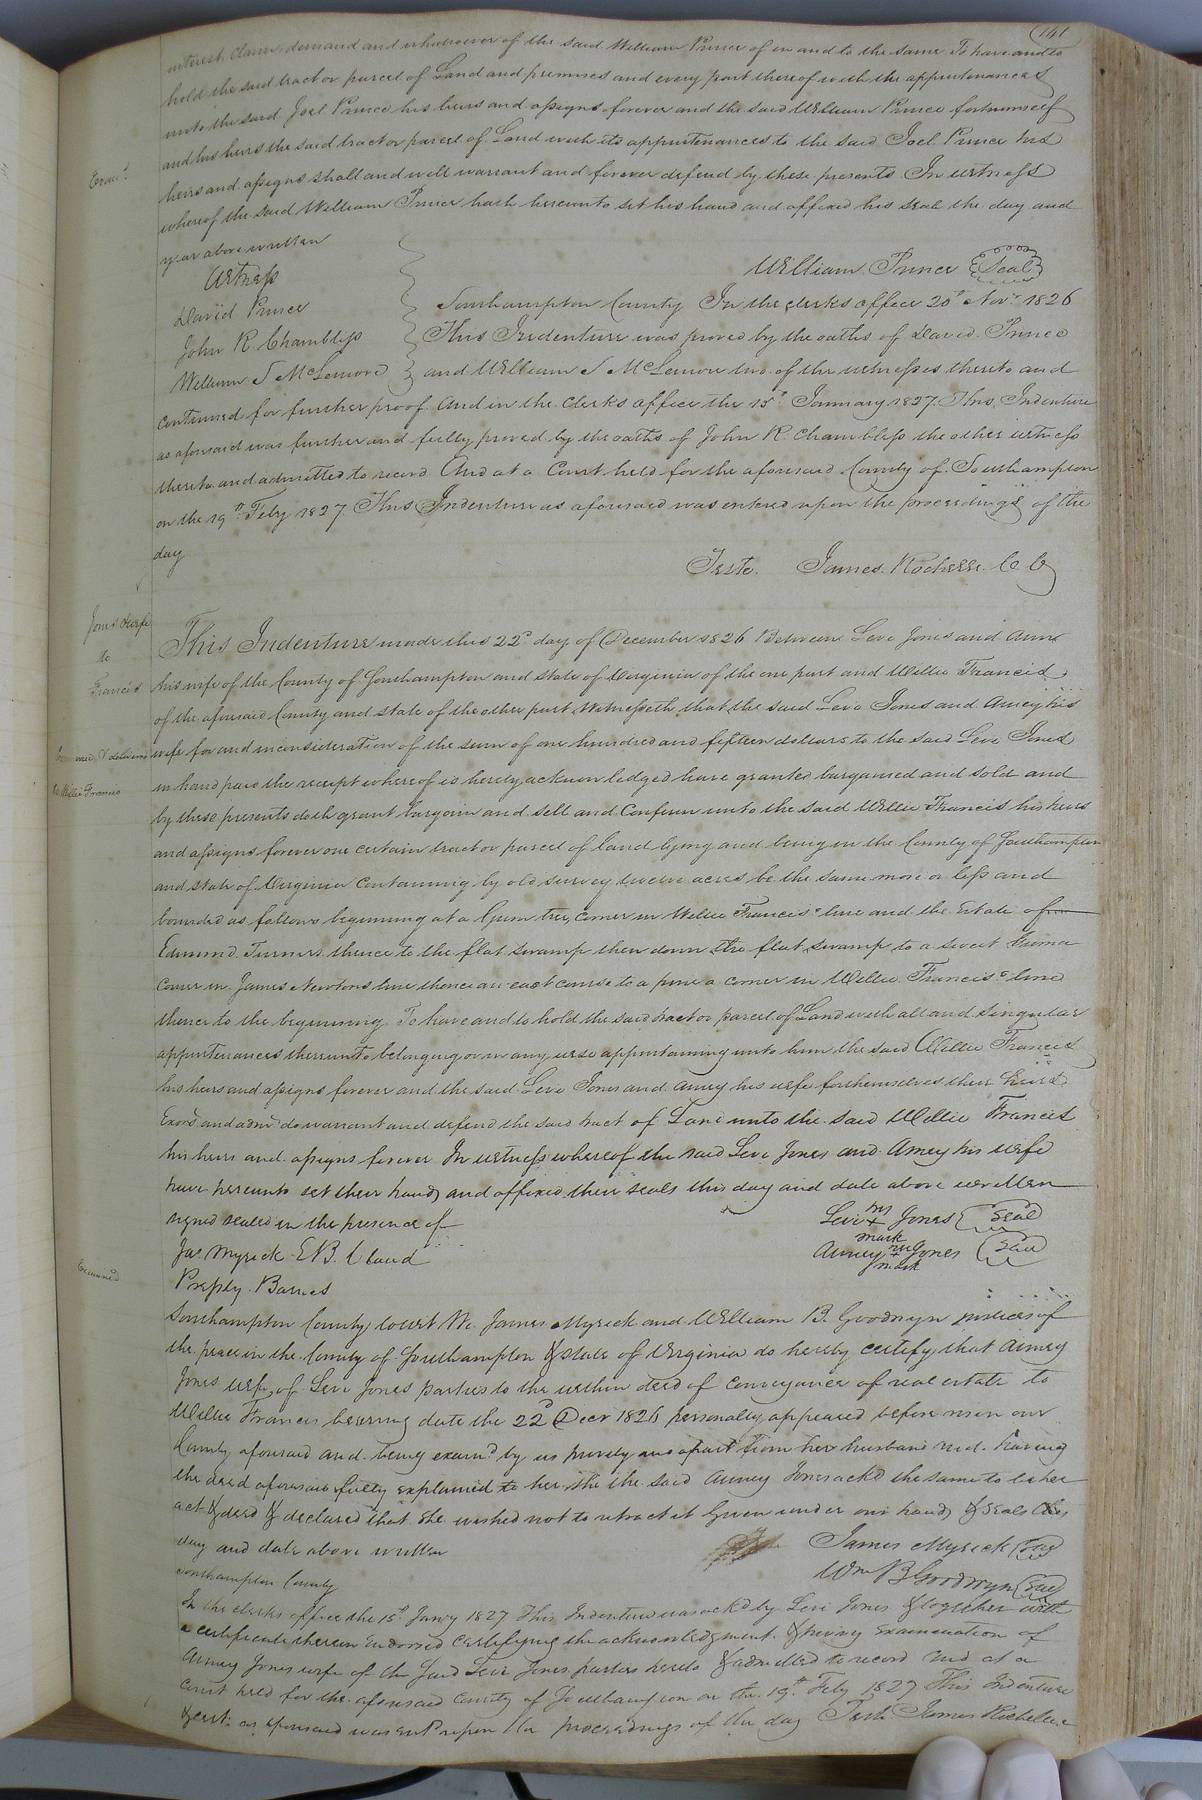 141
interest claim demand and whatsoever of the said William Prince of in and to the same To have and to
hold the said tract or parcel of Land and premises and every part thereof with the appurtenances
unto the said Joel Prince his heirs and assigns forever and the said William Prince for himself
and his heirs the said tract or parcel of Land with its appurtenances to the said Joel Prince his
heirs and assigns shall and will warrant and forever defend by these presents In witness
whereof the said William Prince hath hereunto set his hand and affixed his seal the day and
year above written
Witness
William Prince Seal
David Prince
John R. Chambliss
William S McLemore
Southampton County In the clerks office 20th Novr 1826
This Indenture was proved by the oaths of David Prince
and William S McLemore two of the witnesses thereto and
continued for further proof And in the Clerks office the 15th January 1827. This Indenture
as aforesaid was further and fully proved by the oaths of John R. Chambliss the other witness
thereto and admitted to record And at a Court held for the aforesaid County of Southampton
on the 19th Feby 1827 This Indenture as aforesaid was entered upon the proceedings of the
day
Teste. James Rochelle C C
Jones &
to
Francis
This Indenture made this 22d day of December 1826 Between Levi Jones and
his wife of the County of Southampton and state of Virginia of the one part and Willie Francis
of the aforesaid County and state of the other part Witnesseth that the said Levi Jones and Amey his
wife for and in consideration of the sum of one hundred and fifteen dollars to the said Levi Jones
in hand paid the receipt whereof is hereby acknowledged have granted bargained and sold and
by these presents doth grant bargain and sell and Confirm unto the said Willie Francis his heirs
and assigns forever one certain tract or parcel of land lying and being in the County of Southampton
and state of Virginia Containing by old survey twelve acres be the same more or less and
bounded as follows beginning at a Gum tree, corner in Willie Francis' line and the Estate of
Edmund Turners thence to the flat swamp then down the flat swamp to a sweet
Corner in James Newtons line thence an east course to a pine a corner in Willie Francis's line
thence to the beginning. To have and to hold the said tract or parcel of Land with all and singular
appurtenances thereunto belonging or in any wise appertaining unto him the said Willie Francis
his heirs and assigns forever and the said Levi Jones and Amey his wife for themselves their heirs
Exors and admrs do warrant and defend the said tract of Land unto the said Willie Francis
his heirs and assigns forever In witness whereof the said Levi Jones and Amey his wife
have hereunto set their hands and affixed their seals this day and date above written
signed sealed in the presence of
Levi his + mark Jones Seal
Jas Myrick E B.
Amney her + mark Jones Seal
Barnes
Examined
Southampton County Court We James Myrick and William B. Goodwyn justices of
the peace in the County of Southampton & state of Virginia do hereby certify that Amey
Jones wife of Levi Jones parties to the within deed of conveyance of real estate to
Willie Francis bearing date the 22d Decr 1826 personally appeared before us in our
County aforesaid and being examd by us privily and apart from her husband and having
the deed aforesaid fully explained to her she the said Amney Jones ackd the same to be her
act & deed & declared that she wished not to retract it Given under our hands & seals this
day and date above written
James Myrick Seal
Wm B Goodwyn Seal
Southampton County
In the clerks office the 15th Jany 1827 This Indenture was ackd by Levi Jones & together with
a certificate thereon Endorsed certifying the acknowledgment & privy Examination of
Amney Jones wife of the said Levi Jones parties hereto & admitted to record And at a
Court held for the aforesaid County of Southampton on the 19th Feby 1827 This Indenture
& certe as aforesaid was entd upon the proceedings of the day Teste James Rochelle